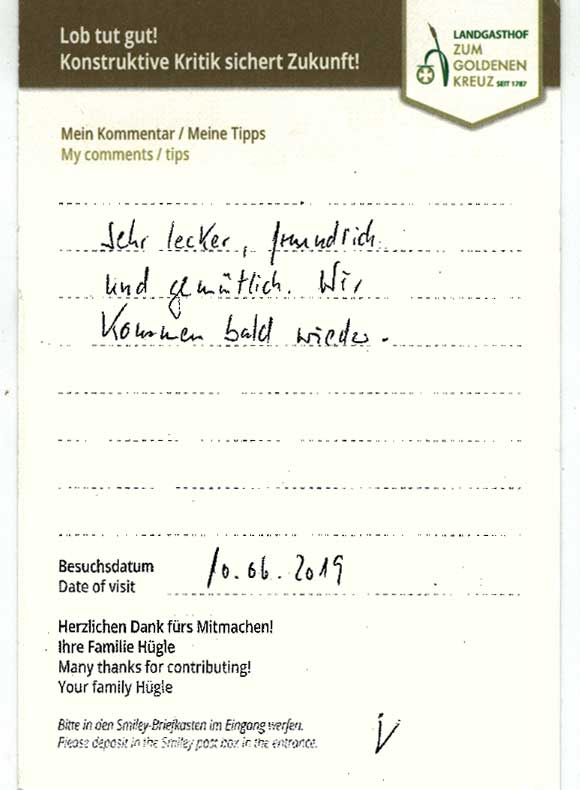 Lob tut gut!
Konstruktive Kritik sichert Zukunft!
LANDGASTHOF
ZUM
GOLDENEN
KREUZ SEIT 1787
Mein Kommentar / Meine Tipps
My comments / tips
Sehr lecker, freundlich
und gemütlich. Wir
kommen bald wieder.
Besuchsdatum
Date of visit
10.06.2019
Herzlichen Dank fürs Mitmachen!
Ihre Familie Hügle
Many thanks for contributing!
Your family Hügle
Bitte in den Smiley-Briefkasten im Eingang werfen.
Please deposit in the Smiley post box in the entrance.